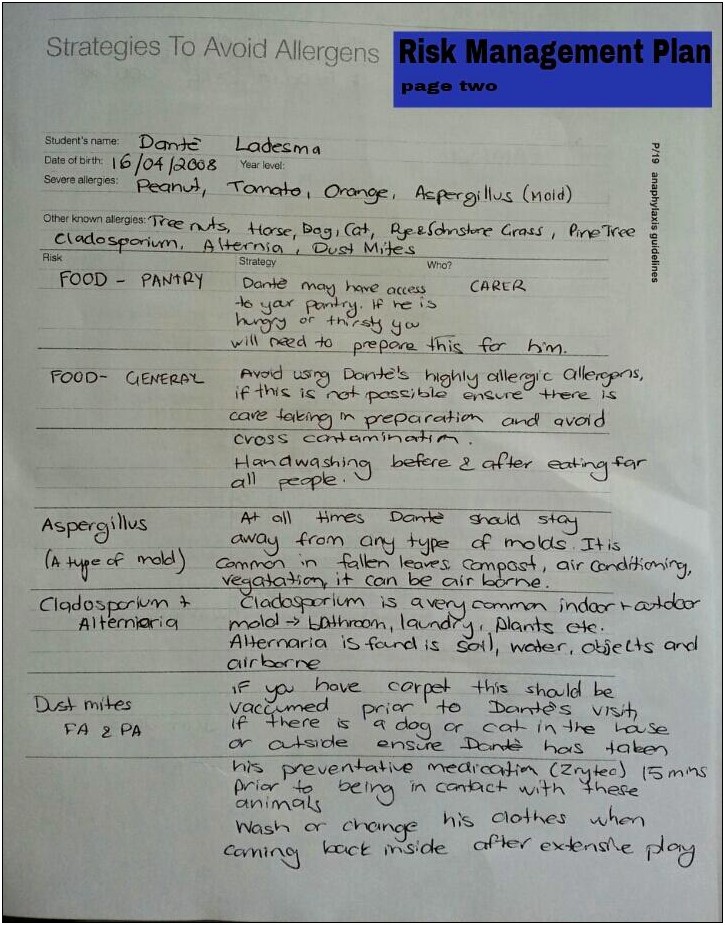 Strategies To Avoid Allergens
Risk Management Plan
page two
P/19 anaphylaxis guidelines
Student's name: Dantè Ladesma
Date of birth: 16/04/2008 Year level:
Severe allergies: Peanut, Tomato, Orange, Aspergillus (Mold)
Other known allergies: Tree nuts, Horse, Dog, Cat, Rye & Johnstone Grass, Pine Tree
Cladosporium, Alternia, Dust Mites
Risk Strategy Who?
FOOD - PANTRY Dantè may have access CARER
to your pantry. If he is
hungry or thirsty you
will need to prepare this for him.
FOOD- GENERAL Avoid using Dantè's highly allergic allergens,
if this is not possible ensure there is
care taking in preparation and avoid
cross contamination.
Handwashing before & after eating for
all people.
Aspergillus At all times Dantè should stay
away from any type of molds. It is
(A type of mold) common in fallen leaves compost, air conditioning,
vegatation, it can be air borne.
Cladosporium + Cladosporium is a very common indoor + outdoor
Alterniaria mold → bathroom, laundry, plants etc.
Alternaria is found is soil, water, objects and
airborne
if you have carpet this should be
Dust mites vaccumed prior to Dantè's visit,
FA & PA if there is a dog or cat in the house
or outside ensure Dantè has taken
his preventative medication (Zrytec) 15 mins
prior to being in contact with these
animals
Wash or change his clothes when
coming back inside after extensive play